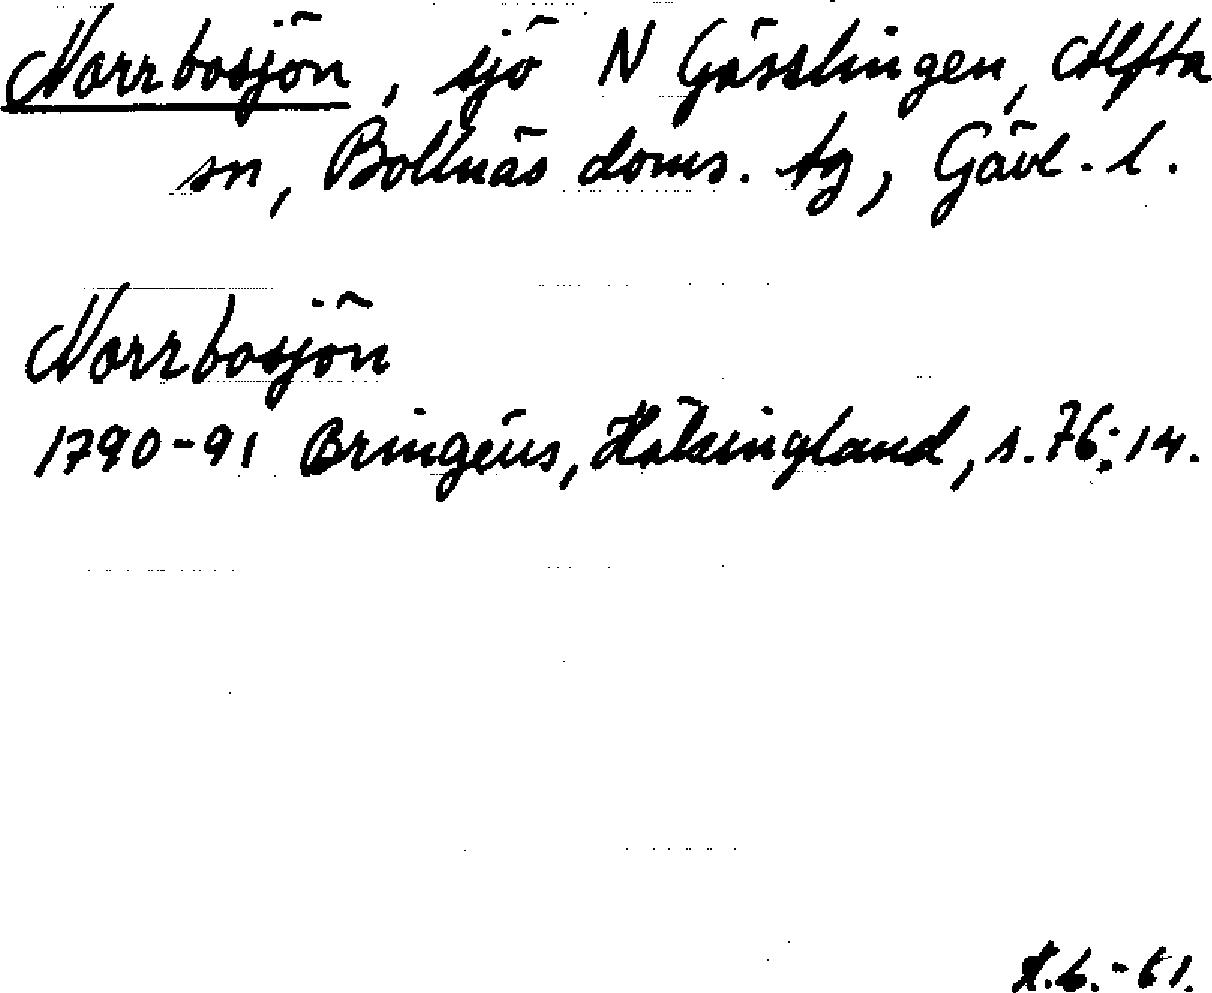 Norrbosjön, sjö N Gässlingen, Alfta
sn, Bollnäs doms. tg, Gävl. l.
Norrbosjön
1790-91 Bringéus, Hälsingland, s. 76:14.
-61.